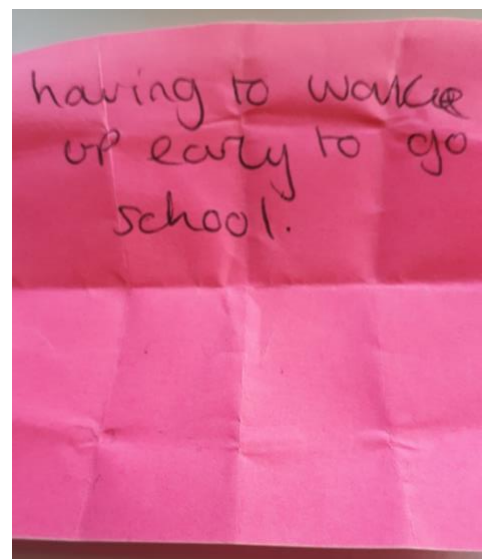 having to wake
up early to go
school.